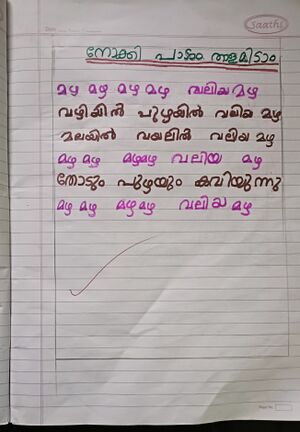 Saathi
Date
നോക്കി പാടാം താളമിടാം
മഴ മഴ മഴ മഴ വലിയ മഴ
വഴിയിൽ പുഴയിൽ വലിയ മഴ
മലയിൽ വയലിൽ വലിയ മഴ
മഴ മഴ മഴമഴ വലിയ മഴ
തോടും പുഴയും കവിയുന്നു
മഴ മഴ മഴമഴ വലിയ മഴ
Page No.